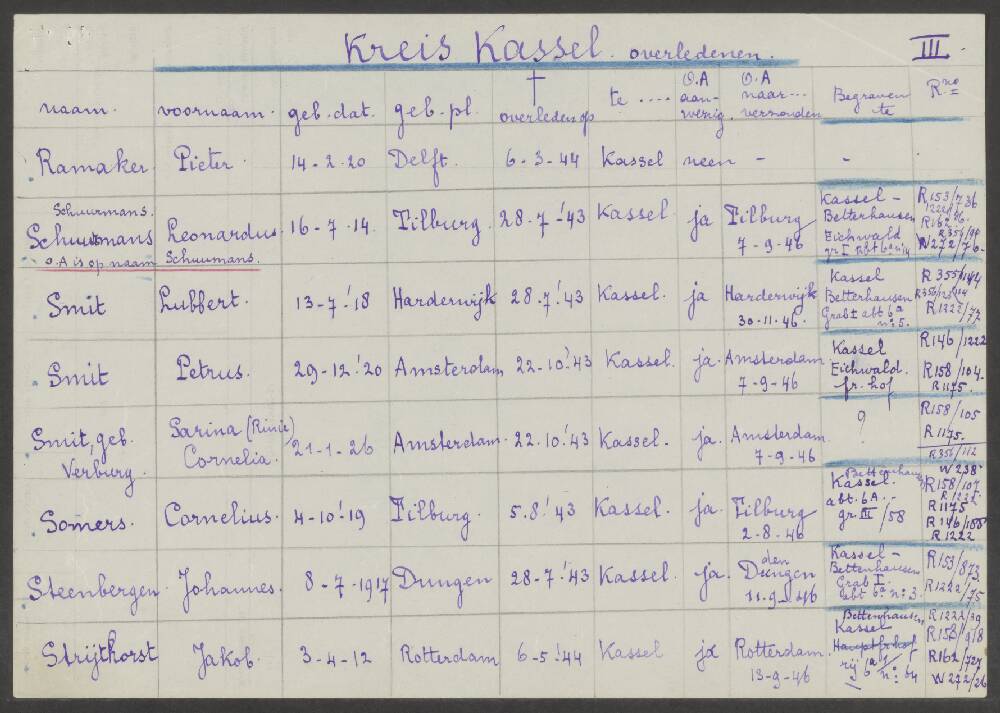 Kreis Kassel. overledenen. III
naam. voornaam. geb. dat. geb. pl. † overleden op te .... O.A aan-wezig. O.A naar... verzonden Begraven te R.no=
Ramaker. Pieter. 14-2-20 Delft. 6-3-44 Kassel neen - -
Schuurmans.
Schuutmans Leonardus. 16-7-14. Tilburg. 28-7-'43 Kassel. ja Tilburg
7-9-46
O.A is op naam Schuumans.
Kassel -
Betterhausen
Eichwald
R153/736
W272/76-
Smit Lubbert. 13-7-'18 Harderwijk 28-7-'43 Kassel. ja Harderwijk
30-11-46.
Kassel
Betterhausen
Grab I abt 6a
no 5.
R1222/77
Smit Petrus. 29-12-'20 Amsterdam 22-10-'43 Kassel. ja. Amsterdam.
7-9-46
Kassel
Eichwald.
fr. hof
R146/1222
R158/104-
R1175.
Smit, geb. Verburg. Sarina (Rinie) Cornelia. 21-1-26 Amsterdam. 22.10.'43 Kassel. ja. Amsterdam
7-9-46
?
R158/105
R1175.
R356/112
Somers. Cornelius. 4-10-'19 Tilburg. 5.8.'43 Kassel. ja. Tilburg
2-8-46
Bettenhausen
Kassel.
abt. 6A.-
gr. III /58
W238
R158/107
R1232
R1175
R146/188
R1222
Steenbergen Johannes. 8-7-1917 Dungen 28-7-'43 Kassel. ja. den Dungen
11-9-46
Kassel -
Bettenhausen
Grab I.
abt 6a no: 3.
R153/873
R1222/75
Strijthorst Jakob. 3-4-12 Rotterdam 6-5-'44 Kassel ja Rotterdam.
13-9-46
Bettenhausen
Kassel
Hauptfrhof
rij 6a/1 no: 64
R1222/99
R158/918
R162/727
W272/26